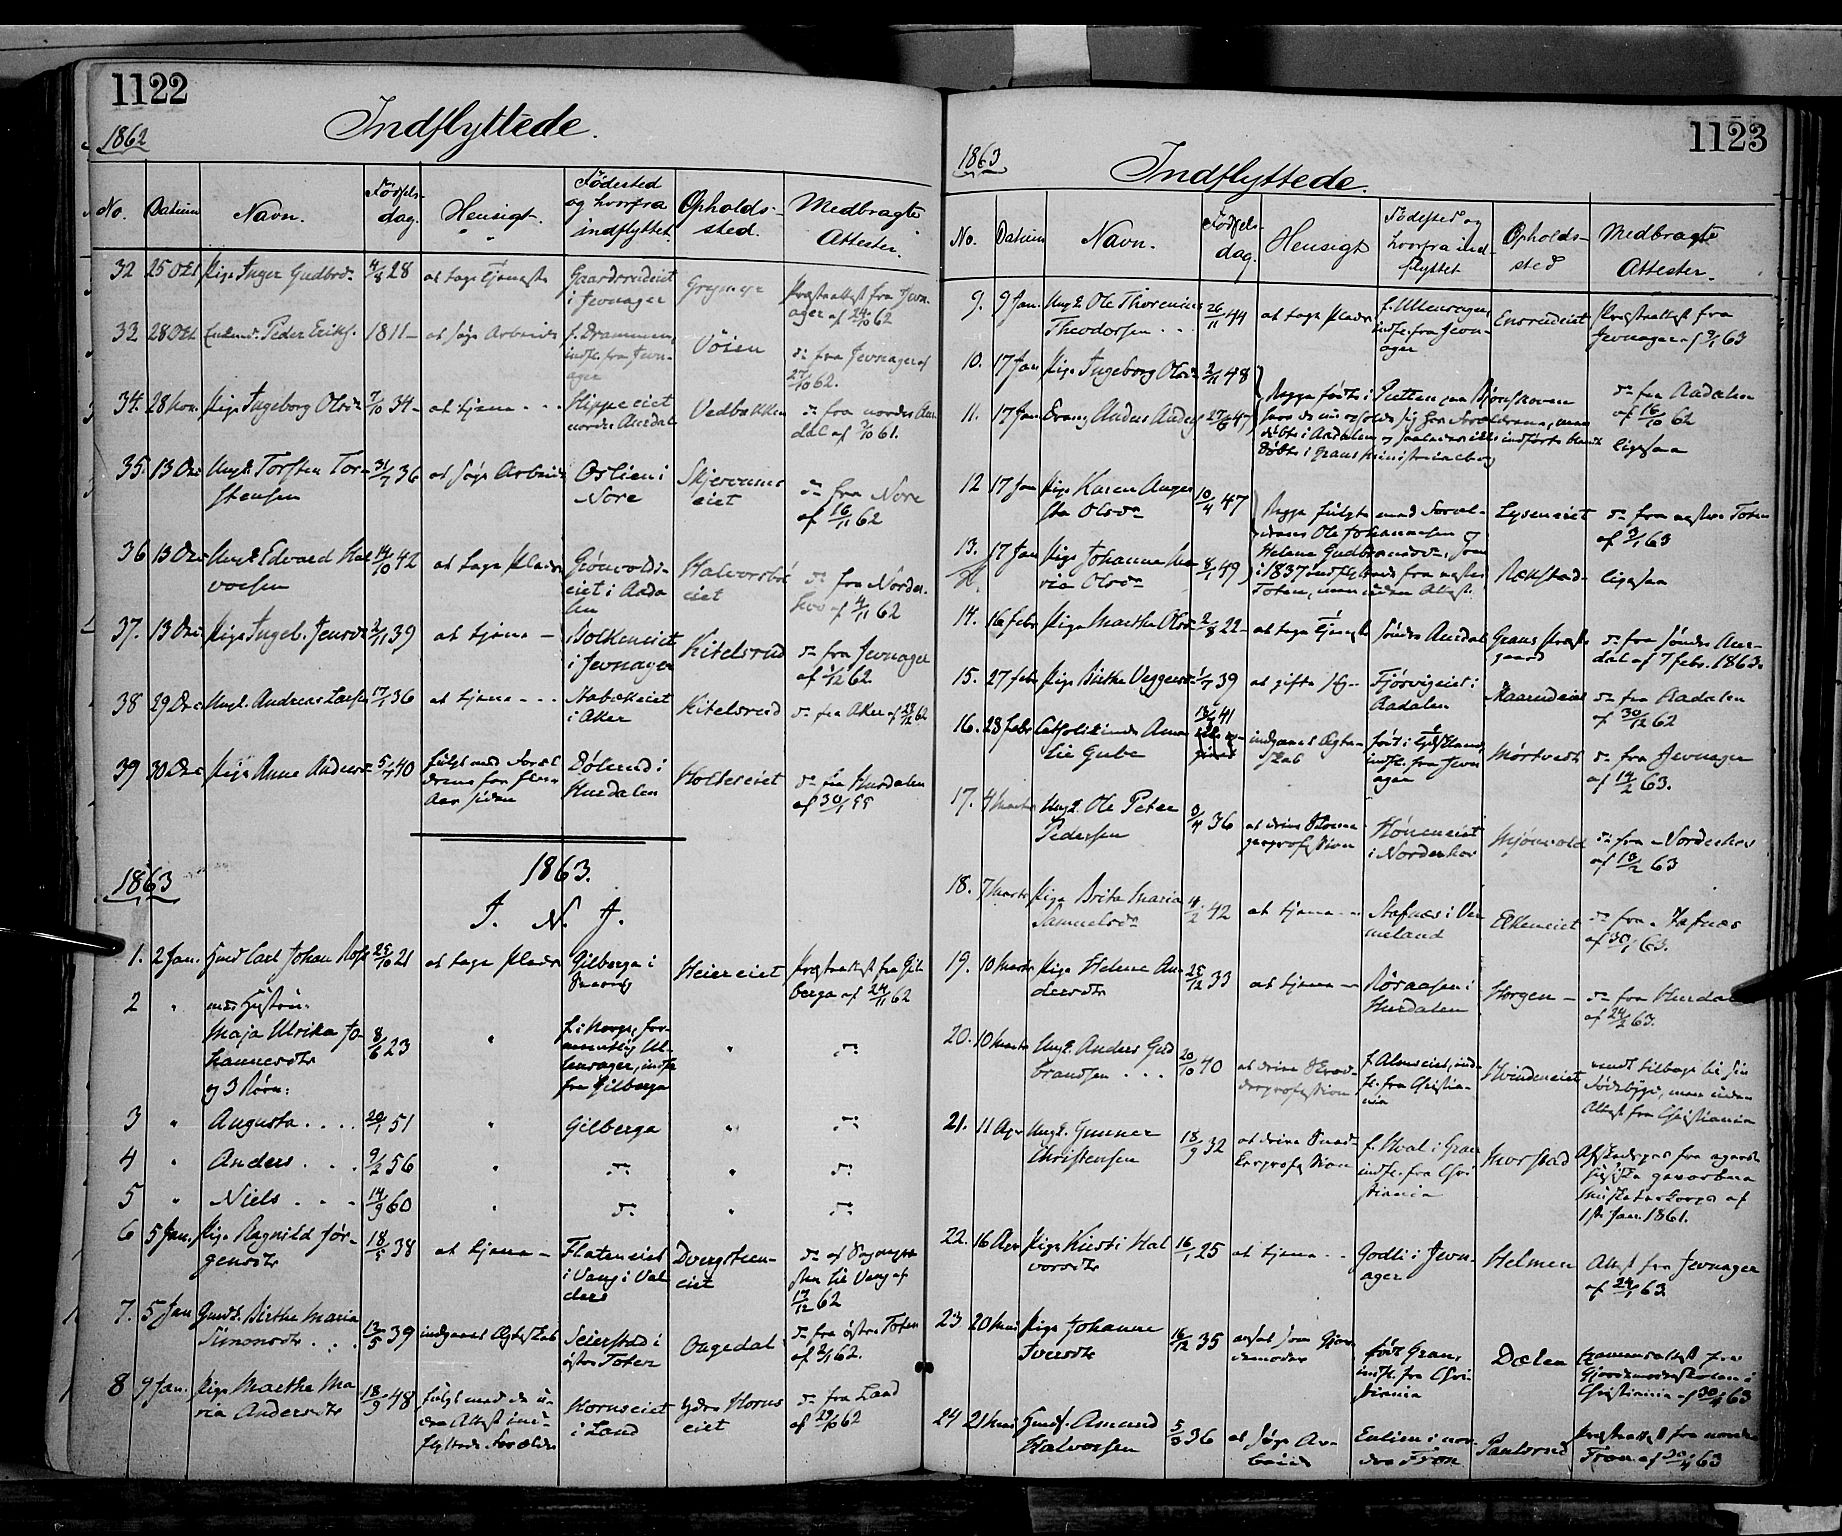 1122
Indflyttede.
1862
No. Datum Navn. Fødsels-dag. Hensigt. Fødested og hvorfra indflyttet. Opholds-sted. Medbragte Attester.
32 25 Oct Pige Inger Gudbrdr 4/8 28 at tage Tjeneste Gaardsrudeiet i Jevnager Præsteattest fra Jevnager af 24/10 62
33 28 Oct Enkem. Peder Eriks. 1811 - at søge Arbeide f. Drammen, indfl. fra Jevnager Vøien do fra Jevnager af 27/10 62.
34. 28 Nov. Pige Ingeborg Olsdr 7/10 34 - at tjene - - - nordre Aurdal Vedbakken do fra nordre Aurdal af 7/10 61.
35. 13 Dec Ungk. Torsten Torstensen 31/7 36 at søge Arbeide Oslien i Nore Skjervumseiet do fra Nore af 16/11 62
36 13 Dec Ungk. Edvard Halvorsen 14/10 42 at tage Plads Grønvoldseiet i Aadalen Halvorsbøeiet do fra Norderhov af 4/11 62
37. 13 Dec Pige Ingeb. Jensdr 2/1 39 at tjene - Bolkeneiet i Jevnager Kitelsrud do fra Jevnager af 1/12 62
38 29 Dec Ungk. Andreas Larsen 17/1 36 at tjene - - - Stabækeiet i Aker Kitelsrud do fra Aker af 28/12 62
39 30 Dec Pige Anne Andersdr 5/7 40 fulgt med Forældrene for flere Aar siden Dølerud i Hurdalen Holteeiet do fra Hurdalen af 30/1 55
1863 1863.
I. N. J.
1. 2 Jan. Carl Johan 25/10 21 at tage Plads Gilberga i Sverig Heiereiet Præsteattest fra Gilberga af 24/11 62
2 " med Hustru: Maja Ulrika Johannesdtr og 3 Børn: 8/6 23 " f. i Norge, formentlig Ullensager, indfl. fra Gilberga " do
3 " Augusta . . . . 20/1 51 " Gilberga " do
4 " Anders . . . 9/2 56 " do " do
5 " Niels . . . 14/9 60 " do " do
6 5 Jan. Pige Ragnild Jørgensdtr 18/5 38 at tjene - Flateneiet i Vang i Valders Dvergsteneiet do af Sognepresten til Vang af 17/12 62
7. 5 Jan Birthe Maria Simonsdtr . . . 13/5 39 indgaaet Ægteskab Seierstad i østre Toten Aagedal do fra østre Toten af 2/1 62.
8 9 Jan. Pige Marthe Maria Andersdtr 18/9 48 fulgt med de uden Attest indflyttede Forældre Hornseiet i Land Horns eiet do fra Land af 29/10 62
1123
1863
Indflyttede.
No. Datum Navn. Fødsels-dag. Hensigt Fødested og hvorfra indflyttet Opholds-sted Medbragte Attester.
9. 9 Jan. Ungk. Ole Thorenius Theodorsen . . . 26/11 44 at tage Plads f. Ullensager, indfl. fra Jevnager Ensrudeiet Præsteattest fra Jevnager af 9/1 63
10. 17 Jan Pige Ingeborg Olsdr 2/11 48 do fra Aadalen af 16/10 62
11. 17 Jan Anders 27/6 47 Begge fødte i Putten paa Bjørneskoven hvor de nu opholde sig hos Forældrene, men døbte i Aadalen og saaledes ikke indførte blandt Døbte i Grans Ministerialbog ligesaa
12 17 Jan Pige Karen Augusta Olsdr 10/4 47 Begge fulgte med Forældrene Ole Johannesen Helene Gudbrandsdr, som i 1837 indflyttede fra vestre Toten, men uden Attest. Lyseneiet do fra vestre Toten af 2/1 63
13. 17 Jan Pige Johanne Maria Olsdr 8/1 49 Rækstad - ligesaa
14. 16 Febr Pige Marthe Olsdr 2/8 22 - at tage Tjeneste Søndre Aurdal Grans Præstegaard do fra Søndre Aurdal af 7 Febr. 1863.
15. 27 Febr Pige Birthe 1/7 39 at gifte sig - i Aadalen do fra Aadalen af 30/12 62
16. 28 Febr Catholikinde Gube 13/2 41 indgaaet Ægteskab født i Tydskland, indfl. fra Jevnager Mortvedt do fra Jevnager af 14/2 63.
17. 4 Marts Ungk. Ole Peter Pedersen 3/4 36 at drive Skomagerprofession Høneneiet i Norderhov Mjønvold do fra Norderhov af 13/2 63
18. 7 Marts Pige Brita Maria Samuelsdr 4/2 42 at tjene - - Stafnæs i Vermeland Ekkeneiet do fra Stafnæs af 30/1 63.
19. 10 Marts Pige Helene Andersdtr 25/12 33 at tjene - Røraasen i Hurdalen Horgen - do fra Hurdalen af 24/2 63.
20. 10 Marts Ungk. Anders Gudbrandsen . . . 20/10 40 at drive Skrædderprofession f. Almseiet, indfl. fra Christiania Hvindeneiet vendt tilbage til sin Fødebygd, men uden Attest fra Christiania
21. 11 Apr Ungk. Gunner Christensen 18/9 32 at drive Snedkerprofession f. Hval i Gran indfl. fra Christiania Morstad Afskedspas fra agershusiske gevorbne Musketeerkorps af 1ste Jan. 1861.
22. 16 Apr Pige Kirsti Halvorsdtr 16/1 25 at tjene - - Godli i Jevnager Helmen Attest fra Jevnager af 24/1 63
23 20 Mai Pige Johanne Iversdtr 16/12 35 ansat som Gjordemoder født Gran, indfl. fra Christiania Dælen Examensattest fra Gjordemoderskolen i Christiania af 30/4 63
24 21 Mai Amund Halvorsen 5/3 36 at søge Arbeide Enlien i nordre Fron Paulsrud Præsteattest fra nordre Fron af 20/4 63